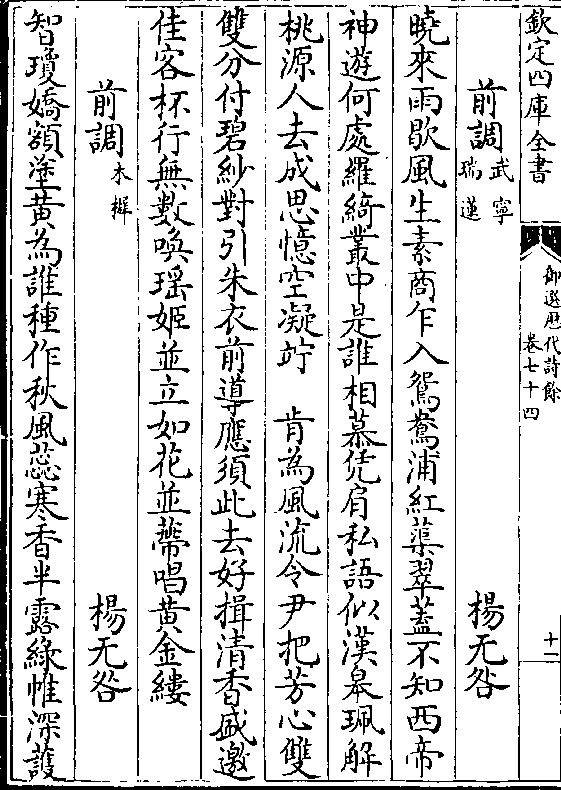 欽定四庫全書
御選歷代詩餘
卷七十四
十一
前調 武寧瑞蓮 楊无咎
曉來雨歇風生素商乍入鴛鴦浦紅蕖翠蓋不知西帝
神遊何處羅綺叢中是誰相慕凭肩私語似漢皋珮解
桃源人去成思憶空凝竚 肯為風流令尹把芳心雙
雙分付碧紗對引朱衣前導應須此去好揖清香盛邀
佳客杯行無數喚瑶姬並立如花並蔕唱黄金縷
前調 木樨 楊无咎
智瓊嬌額塗黄為誰種作秋風蕊寒香半露綠帷深護